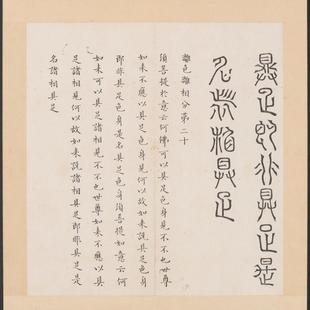 具足即非具足是
名諸相具足
離色離相分第二十
須菩提於意云何佛可以具足色身見不不也世尊
如來不應以具足色身見何以故如來說具足色身
即非具足色身是名具足色身須菩提於意云何
如來可以具足諸相見不不也世尊如來不應以具
足諸相見何以故如來說諸相具足即非具足是
名諸相具足